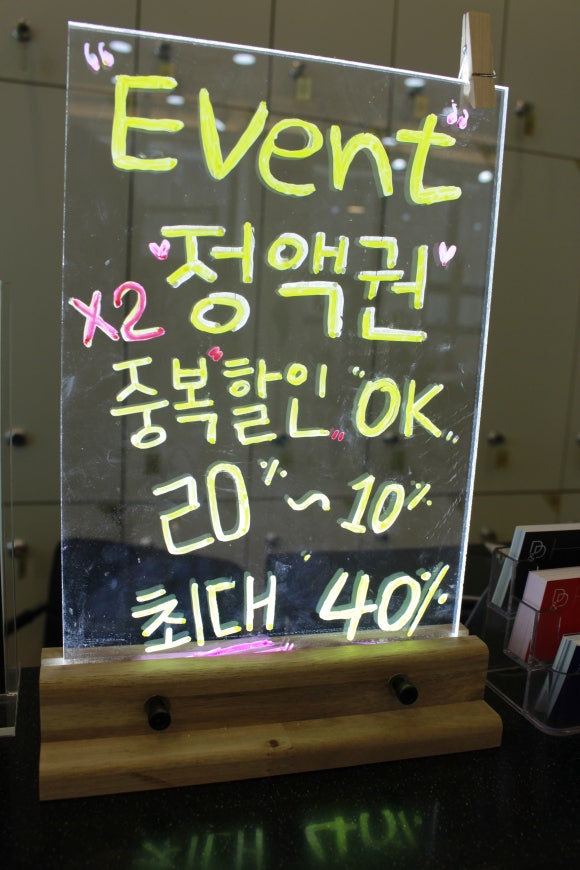 "Event"
정액권
X2
중복할인 "OK"
20% ~ 10%
최대 40%